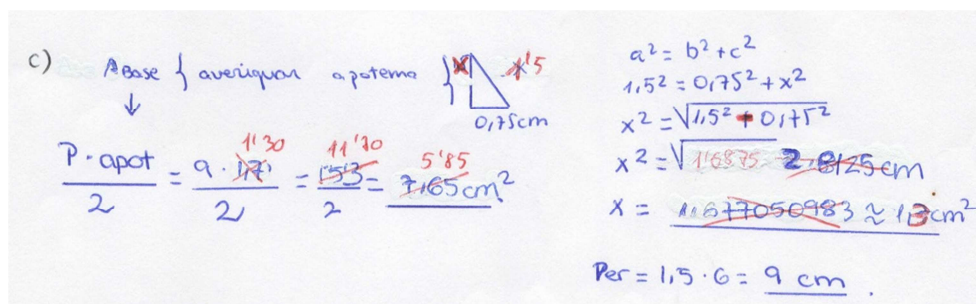 c) A Base { averiguar apotema { x 1'5
0,75cm
P · apot / 2 = 9 · 1,7 / 2 = 15,3 / 2 = 7,65 cm²
1'30 11'70 5'85
a² = b² + c²
1,5² = 0,75² + x²
x² = √1,5² + 0,75²
x² = √1'6875 2,8125 cm
x = 1,677050983 ≈ 1,3 cm²
Per = 1,5 · 6 = 9 cm.